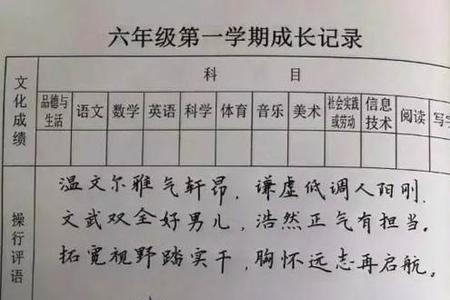 六年级第一学期成长记录
科 目
文化成绩
品德与生活 语文 数学 英语 科学 体育 音乐 美术 社会实践或劳动 信息技术 阅读 写字
操行评语
温文尔雅气轩昂，谦虚低调人阳刚，
文武双全好男儿，浩然正气有担当。
拓宽视野踏实干，胸怀远志再启航。